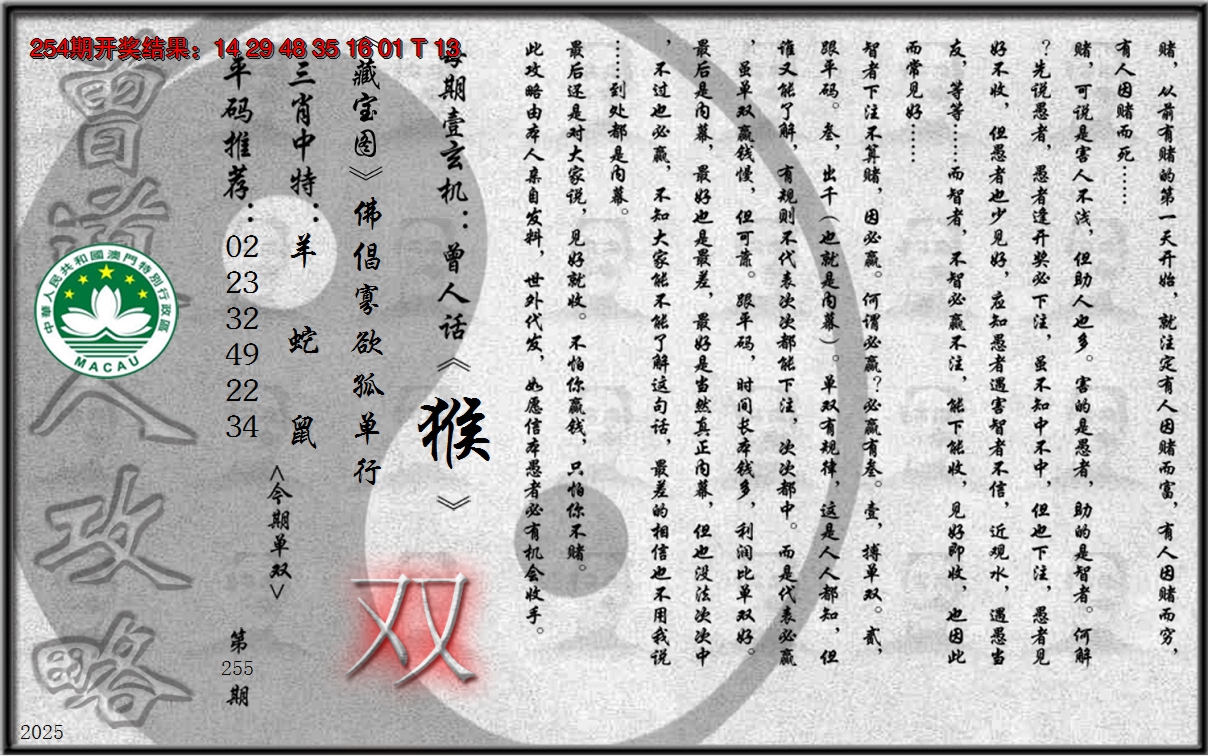 254期开奖结果：14 29 48 35 16 01 T 13
赌，从前有赌的第一天开始，就注定有人因赌而富，有人因赌而穷，
有人因赌而死……
赌，可说是害人不浅，但助人也多。害的是愚者，助的是智者。何解
？先说愚者，愚者逢开奖必下注，虽不知中不中，但也下注，愚者见
好不收，但愚者也少见好，应知愚者遇害智者不信，近观水，遇愚当
友，等等……而智者，不智必赢不注，能下能收，见好即收，也因此
而常见好……
智者下注不算赌，因必赢。何谓必赢？必赢有叁。壹，搏单双。贰，
跟平码。叁，出千（也就是内幕）。单双有规律，这是人人都知，但
谁又能了解，有规则不代表次次都能下注，次次都中。而是代表必赢
，虽单双赢钱慢，但可靠。跟平码，时间长本钱多，利润比单双好。
最后是内幕，最好也是最差，最好是当然真正内幕，但也没法次次中
，不过也必赢，不知大家能不能了解这句话，最差的相信也不用我说
……到处都是内幕。
最后还是对大家说，见好就收。不怕你赢钱，只怕你不赌。
此攻略由本人亲自发料，世外代发，如愿信本愚者必有机会收手。
每期壹玄机：曾人话《猴》
《藏宝图》佛倡寡欲孤单行
三肖中特：羊 蛇 鼠
<今期单双>
双
平码推荐：
02
23
32
49
22
34
第
255
期
曾道人攻略
中華人民共和國澳門特別行政區
MACAU
2025